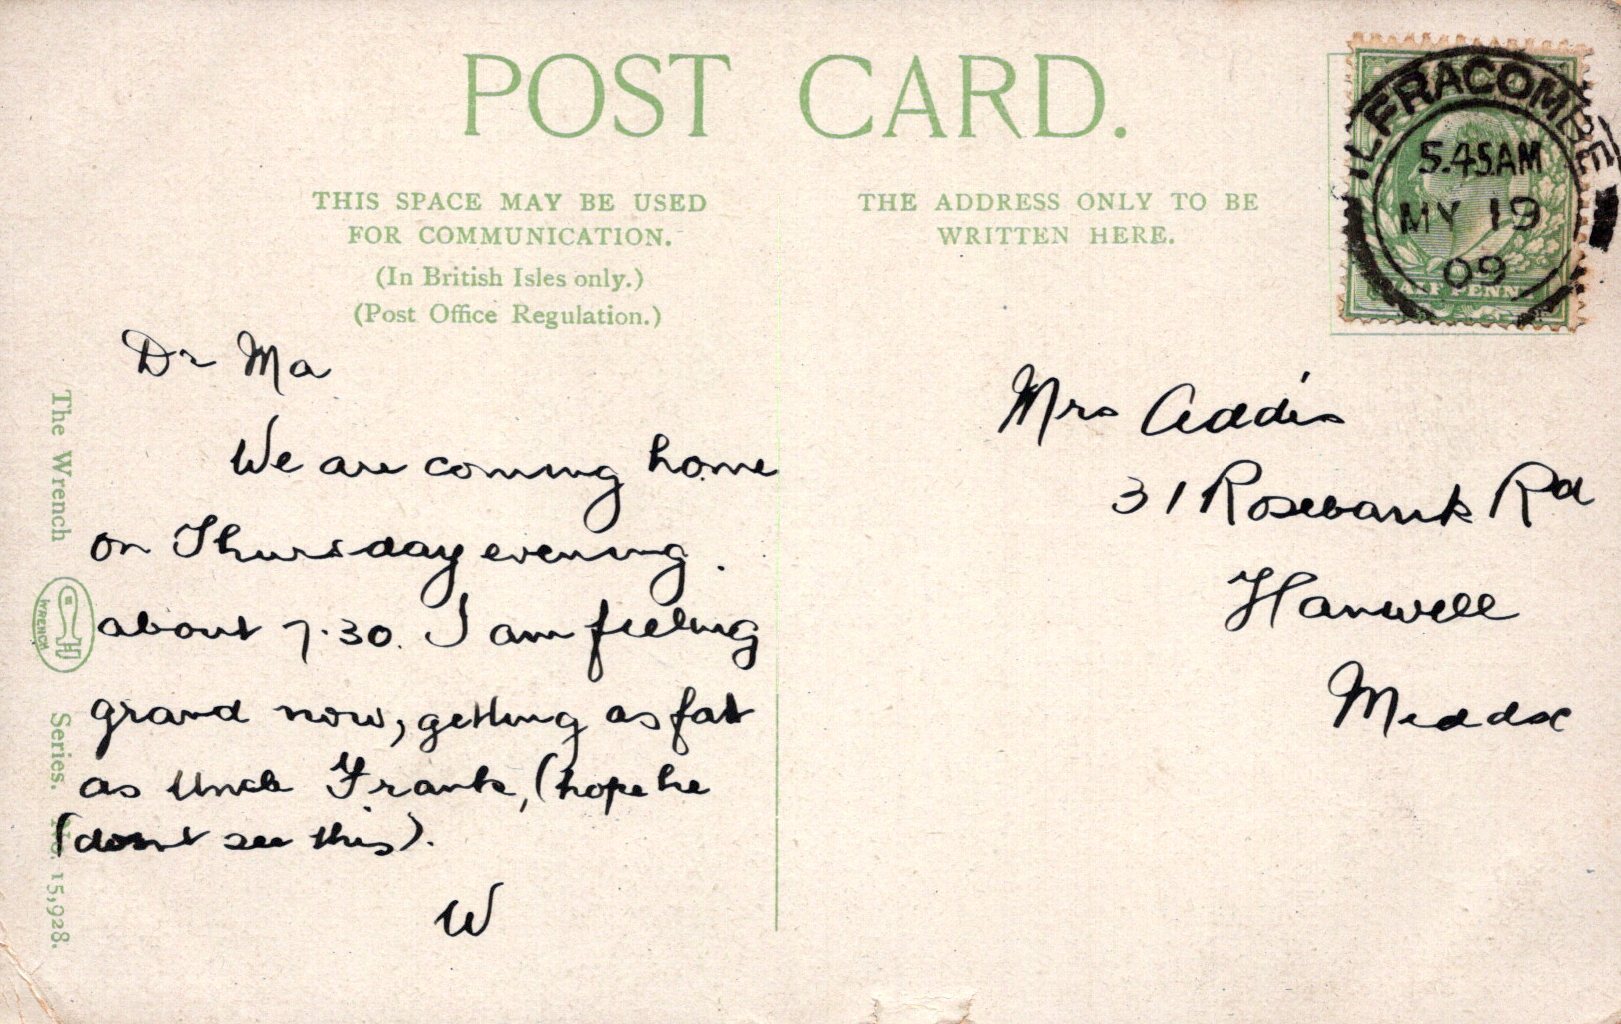 POST CARD.
THIS SPACE MAY BE USED
FOR COMMUNICATION.
(In British Isles only.)
(Post Office Regulation.)
THE ADDRESS ONLY TO BE
WRITTEN HERE.
ILFRACOMBE
5.45AM
MY 19
09
HALF PENNY
Dr Ma
We are coming home
on Thursday evening.
about 7.30. I am feeling
grand now, getting as fat
as Uncle Frank, (hope he
(dont see this).
W
Mrs Addis
31 Rosebank Rd
Hanwell
Middx
The Wrench
WRENCH
Series. No. 15,928.